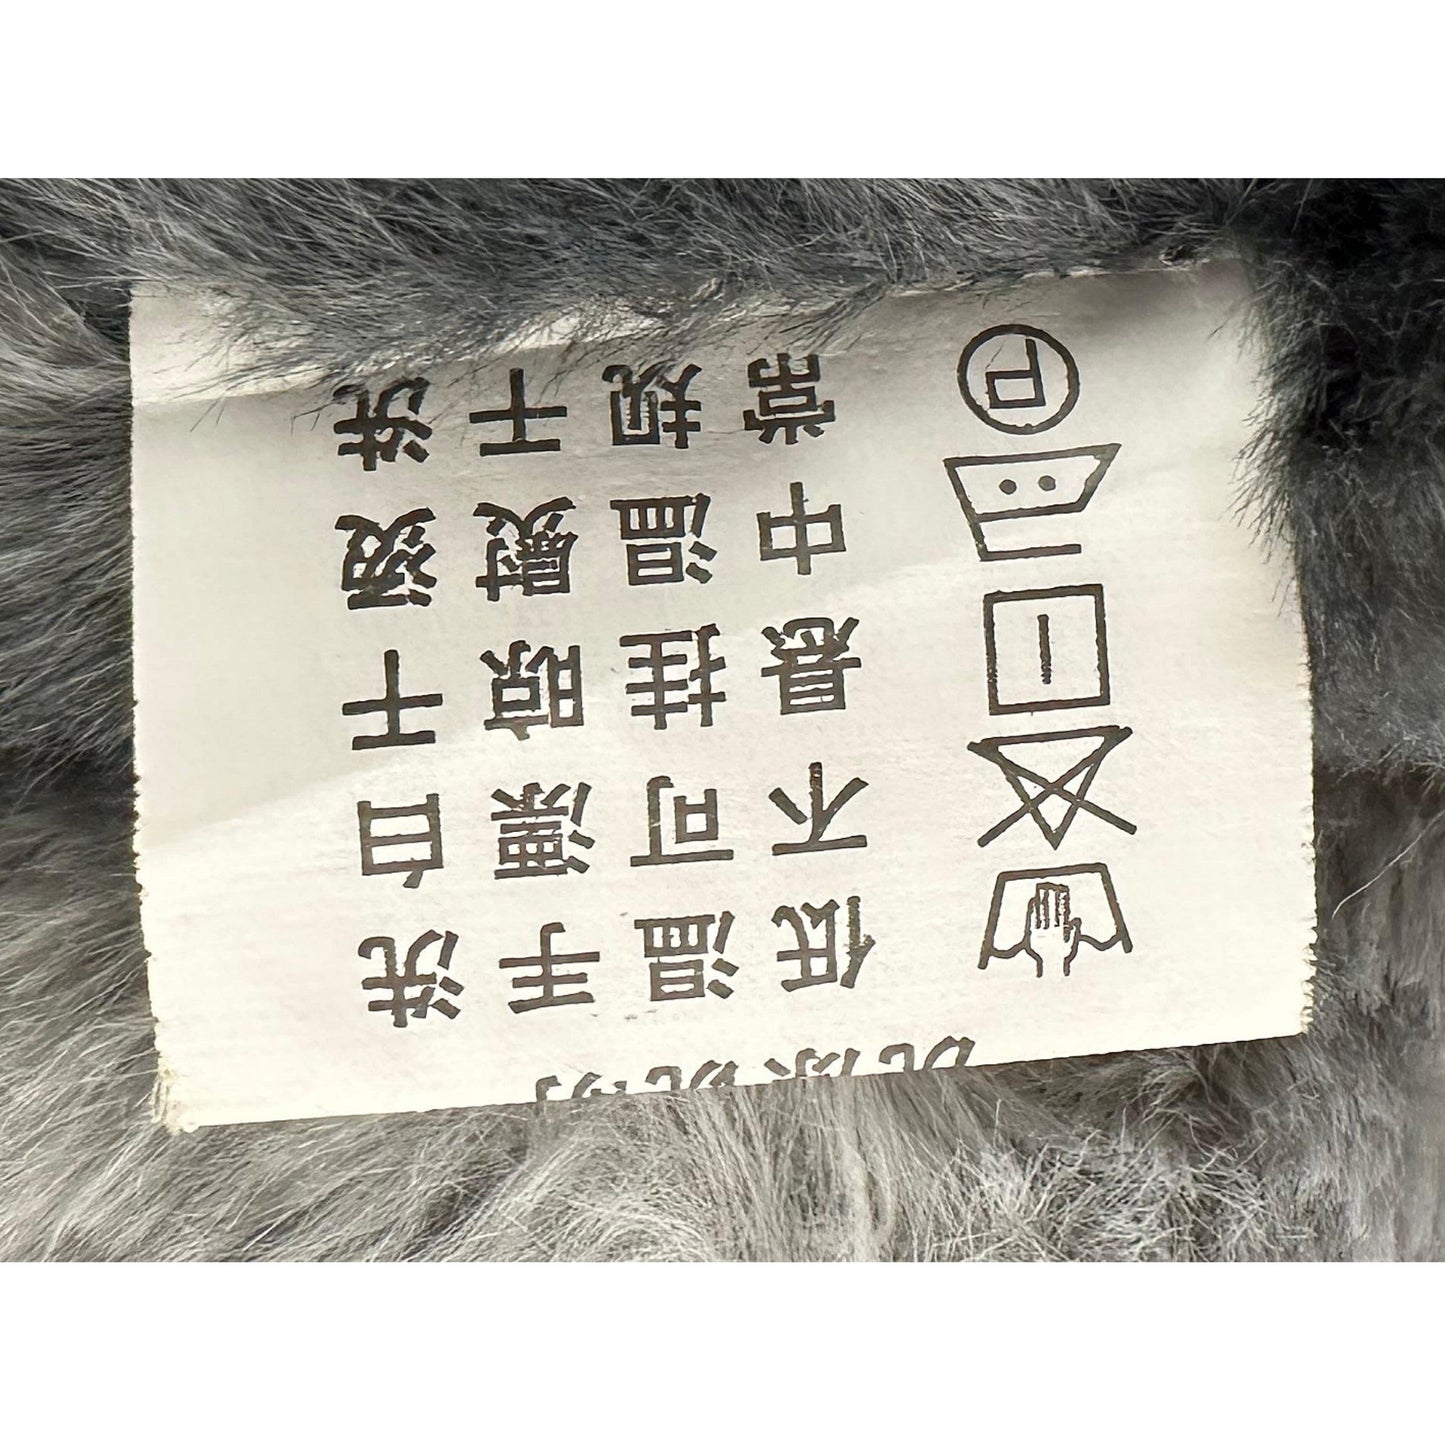 低温手洗
不可漂白
悬挂晾干
中温熨烫
P 常规干洗